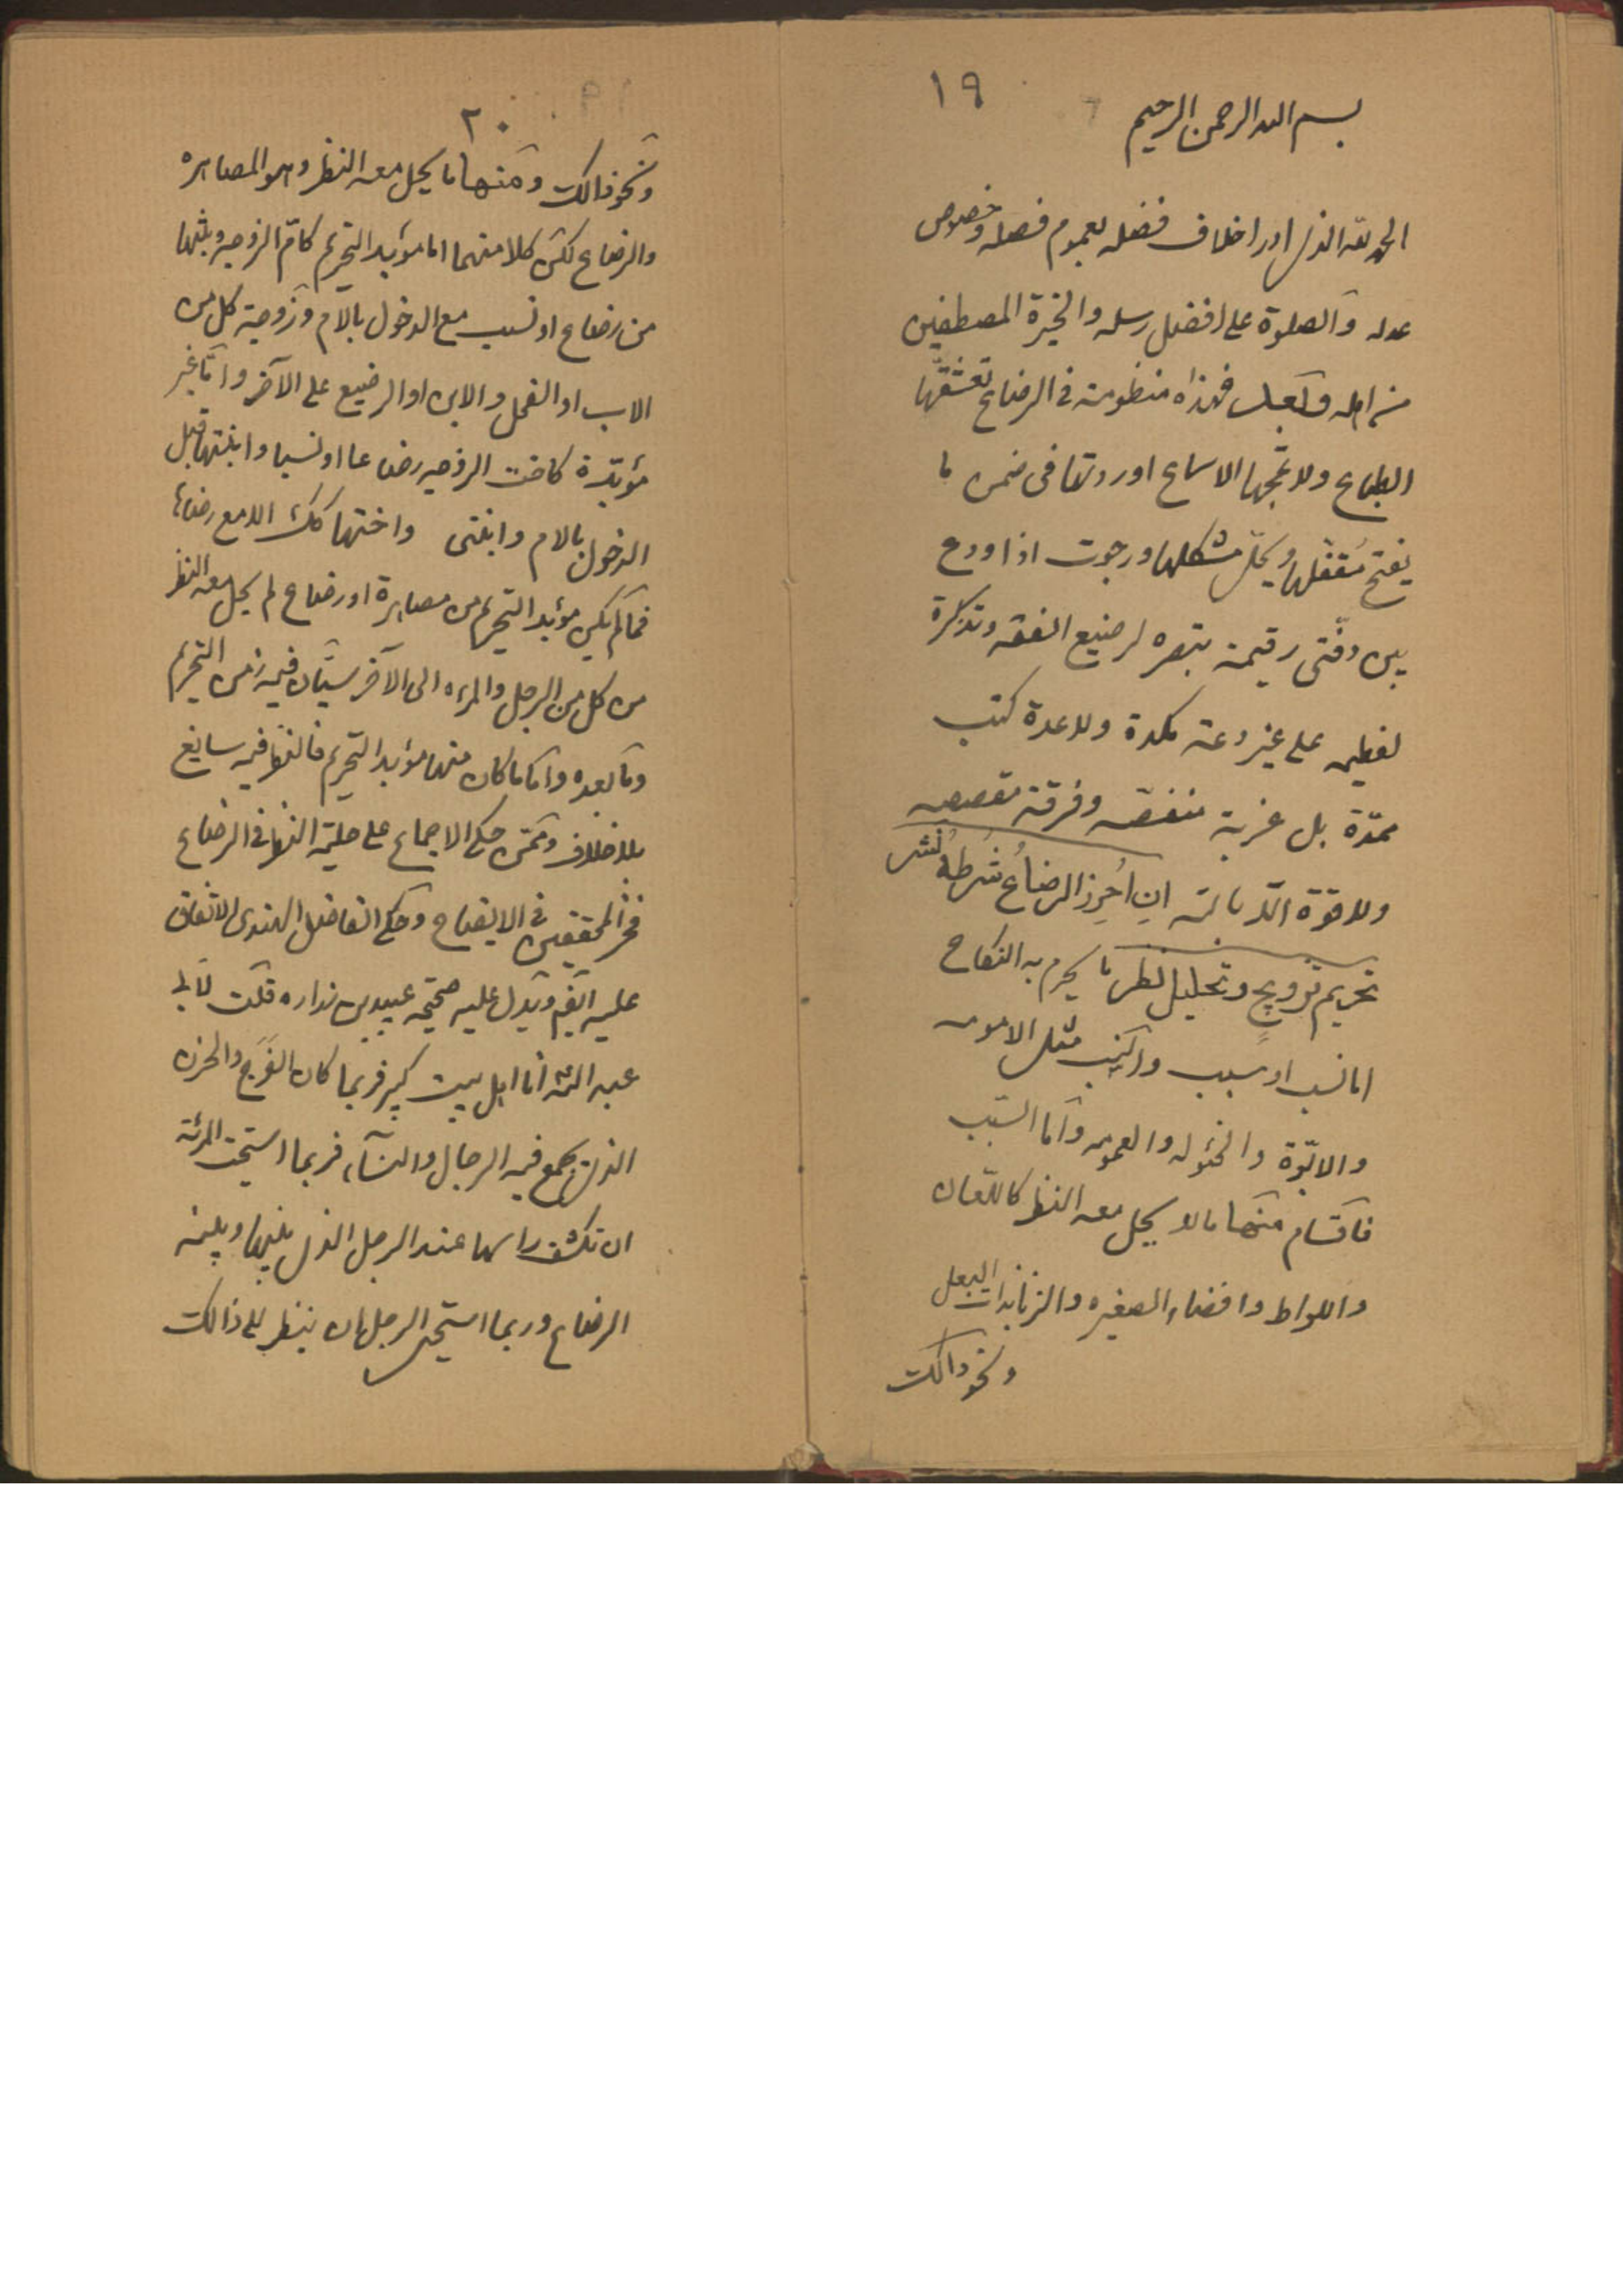 ١٩
بسم الله الرحمن الرحيم
الحمد لله الذى ادر اخلاف فضله بعموم فصله وخصوص
عدله والصلوة على افضل رسله والخيرة المصطفين
من اهله وبعد فهذه منظومة فى الرضاع تعشقها
الطباع ولا تمجها الاسماع اوردتها فى ضمن ما
يفتح مقفلها ويحل مشكلها ورجوت اذا ودع
بين دفتى رقيمة تبصره لرضيع الفقه وتذكرة
لفطيمه على غير دعة ولا عدة كتب
ممدة بل غربة منغصه وفرقة
ولا قوة الا بالله ان احرز الرضاع شرطه نشر
تحريم تزويج وتحليل نظر ما يحرم به النكاح
اما نسب او سبب والنسب مثل الامومه
والابوة والخئوله والعمومه واما السبب
فاقسام منها ما لا يحل معه النظر كاللعان
واللواط وافضاء الصغيره والزنا بذات البعل
ونحو ذالك
٢٠
ونحو ذالك ومنها ما يحل معه النظر وهو المصاهره
والرضاع لكن كلا منهما اما مؤبد التحريم كام الزوجه وبنتها
من رضاع او نسب مع الدخول بالام وزوجة كل من
الاب او الفحل والابن او الرضيع على الآخر واما غير
مؤبدة كاخت الزوجه رضاعا او نسبا وابنتها قبل
الدخول بالام وابنتى واختها كك الا مع رضاها
فما لم يكن مؤبد التحريم من مصاهرة او رضاع لم يحل معه النظر
من كل من الرجل والمرءه الى الآخر سيان فيه زمن التحريم
وما بعده واما ما كان منها مؤبد التحريم فالنظر فيه سايغ
بلا خلاف وممن حكى الاجماع على حلية النظر فى الرضاع
فخر المحققين فى الايضاح وحكى الفاضل الهندى الاتفاق
عليه ايضم ويدل عليه صحيحه عبيد بن زراره قلت لابى
عبد الله انا اهل بيت كبير فربما كان الفرح والحزن
الذى يجمع فيه الرجال والنسآء فربما استحيت المرئة
ان تكشف راسها عند الرجل الذى بينها وبينه
الرضاع وربما استحيى الرجل ان ينظر الى ذالك